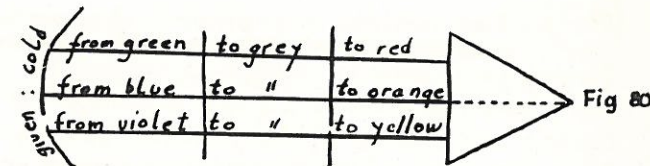 given : cold
from green to grey to red
from blue to " to orange
from violet to " to yellow
Fig 80